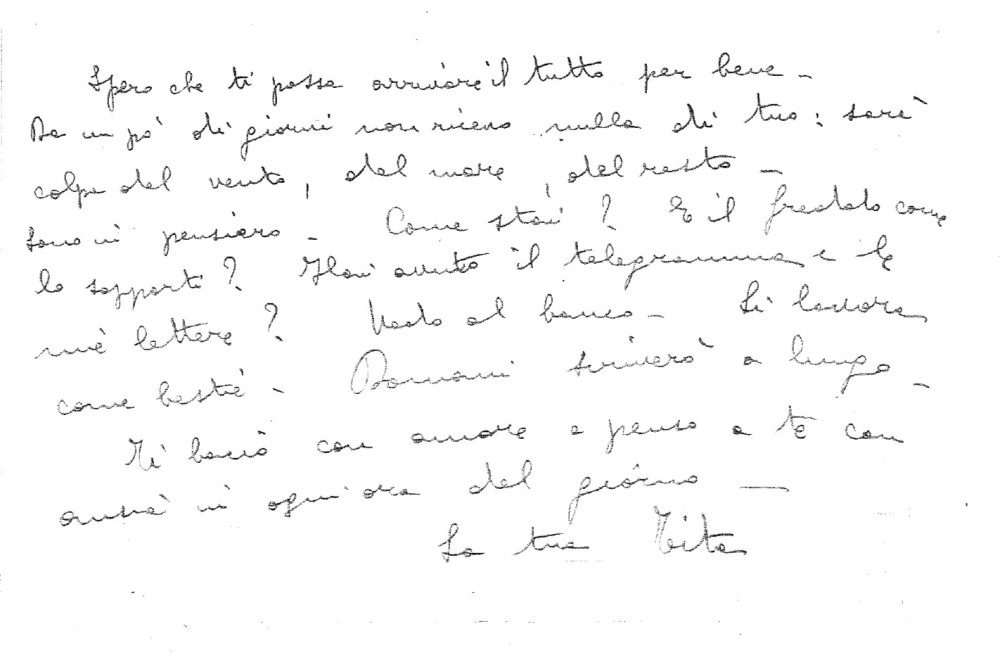 Spero che ti possa arrivare il tutto per bene -
Da un po' di giorni non ricevo nulla di tuo: sarà
colpa del vento, del mare, del resto -
Sono in pensiero - Come stai? E il freddo come
lo sopporti? Hai avuto il telegramma e le
mie lettere? Vado al banco - Si lavora
come bestie - Domani scriverò a lungo -
Ti bacio con amore e penso a te con
ansia in ogni ora del giorno -
La tua Tita